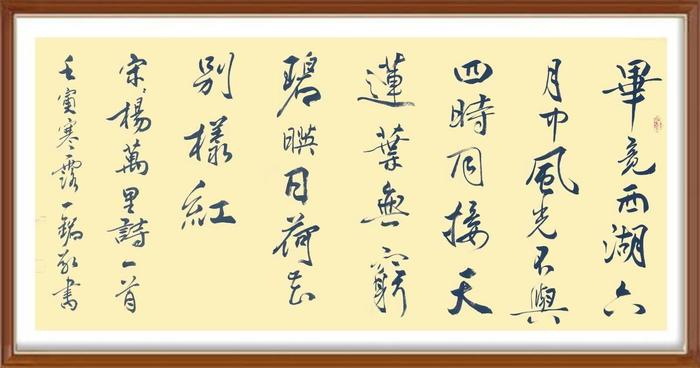 畢竟西湖六
月中風光不與
四時同接天
蓮葉無窮
碧映日荷花
別樣紅
宋楊萬里詩一首
壬寅寒露一銘敬書